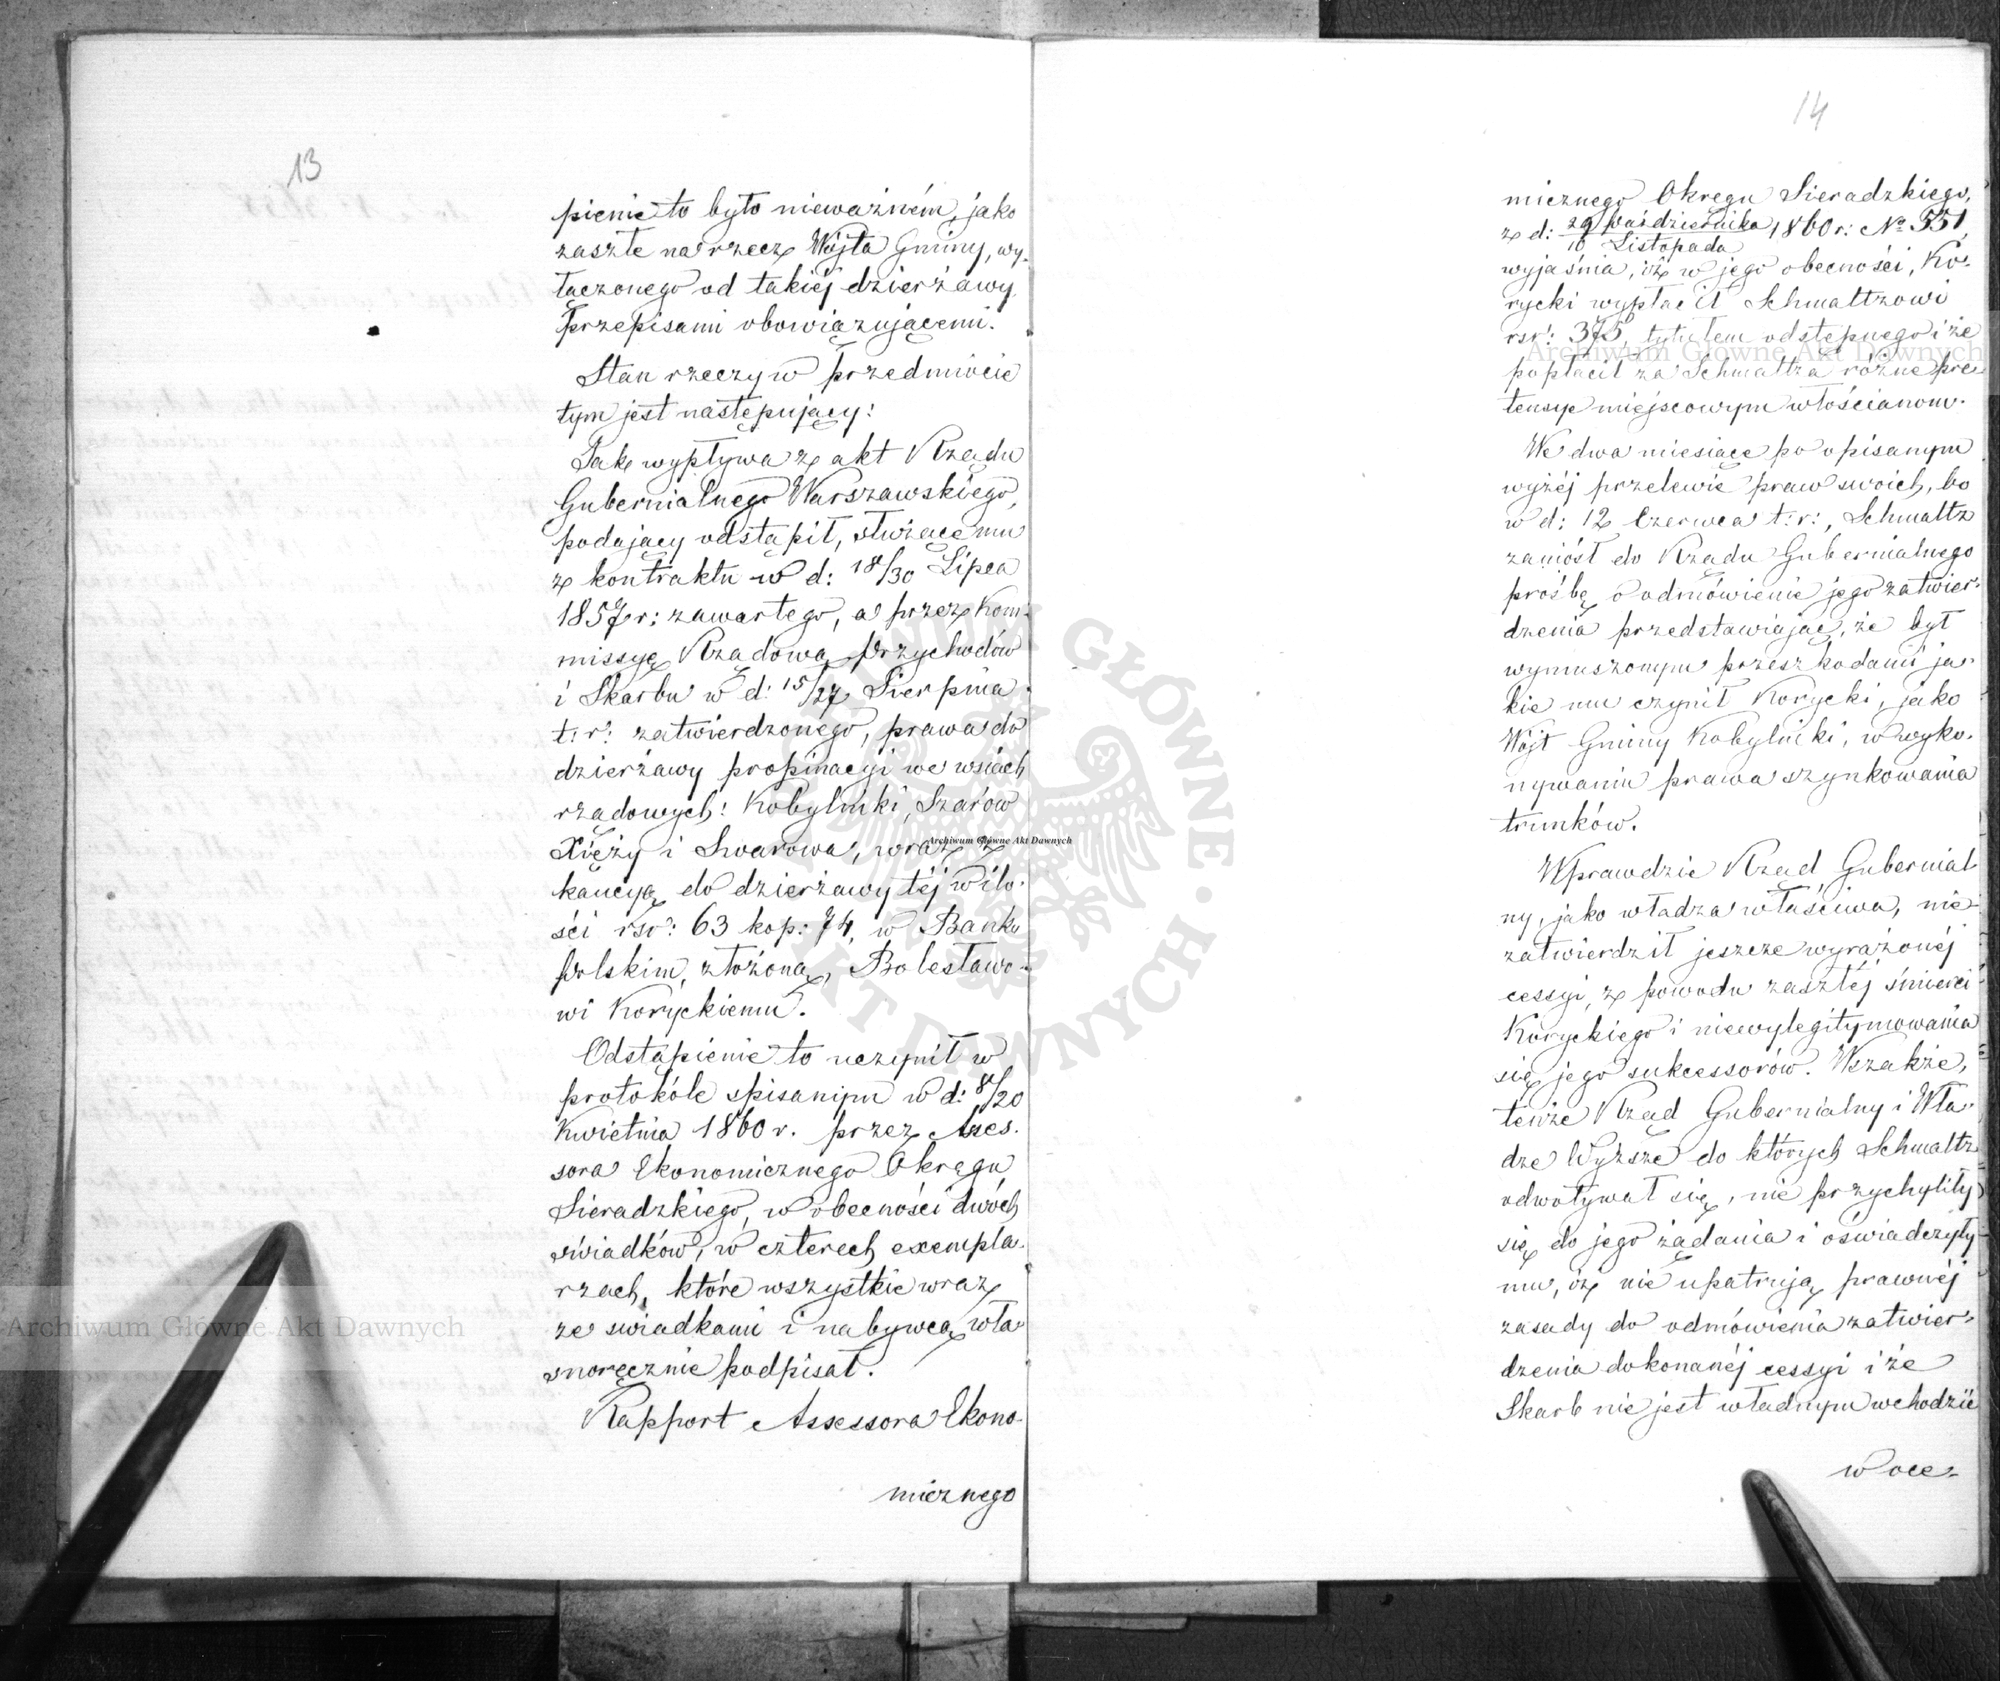 13
pienie to było nieważném, jako
zaszłe na rzecz Wójta Gminy, wy-
łączonego od takiéj dzierżawy
przepisami obowiązującemi.
Stan rzeczy w przedmiocie
tym jest następujący:
Jak wypływa z akt Rządu
Gubernialnego Warszawskiego,
podający odstąpił, służące mu
z kontraktu w d: 18/30 Lipca
1857 r: zawartego, a przez Kom-
missyę Rządową Przychodów
i Skarbu w d: 15/27 Sierpnia
t: r: zatwierdzonego, prawa do
dzierżawy propinacyi we wsiach
rządowych: Kobylniki, Szarów
Xięży i Swarowa, wraz z
kaucyą do dzierżawy téj w ilo-
ści rsr: 63 kop: 74, w Banku
Polskim złożoną, Bolesławo-
wi Koryckiemu.
Odstąpienie to uczynił w
protokóle spisanym w d: 8/20
Kwietnia 1860 r. przez Asses-
sora Ekonomicznego Okręgu
Sieradzkiego, w obecności dwóch
świadków, w czterech exempla-
rzach, które wszystkie wraz
ze swiadkami i nabywcą wła-
snoręcznie podpisał.
Rapport Assessora Ekono-
micznego
14
micznego Okręgu Sieradzkiego,
z d: 29 Października/10 Listopada 1860 r: No 551,
wyjaśnia, iż w jego obecności, Ko-
rycki wypłacił Schmaltzowi
rsr: 375, tytułem odstępnego i że
popłacił za Schmaltza różne pre-
tensye miejscowym włościanom.
We dwa miesiące po opisanym
wyżéj przelewie praw swoich, bo
w d: 12 Czerwca t: r:, Schmaltz
zaniósł do Rządu Gubernialnego
prośbę o odmówienie jego zatwier-
dzenia przedstawiając, że był
wymuszonym przeszkodami ja-
kie mu czynił Korycki, jako
Wójt Gminy Kobylniki, w wyko-
nywaniu prawa szynkowania
trunków.
Wprawdzie Rząd Gubernial
ny, jako władza właściwa, nie
zatwierdził jeszcze wyrażonéj
cessyi, z powodu zaszłéj śmierci
Koryckiego i niewylegitymowania
się jego sukcessorów. Wszakże,
tenże Rząd Gubernialny i Wła-
dze Wyższe do których Schmaltz
odwoływał się, nie przychyliły
się do jego żądania i oświadczyły
mu, iż nie upatrują prawnéj
zasady do odmówienia zatwier-
dzenia dokonanéj cessyi i że
Skarb nie jest władnym wchodzić
w oce-
Archiwum Główne Akt Dawnych
Archiwum Główne Akt Dawnych
Archiwum Główne Akt Dawnych